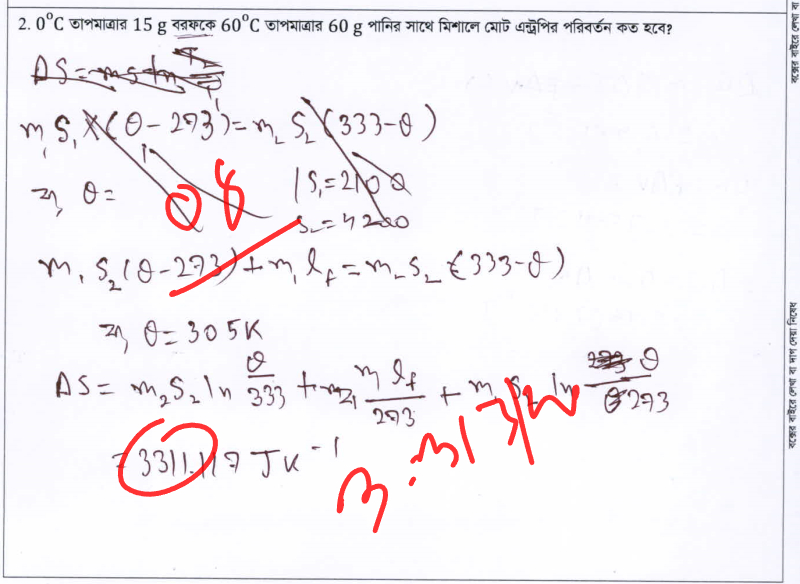 2. 0⁰C তাপমাত্রার 15 g বরফকে 60⁰C তাপমাত্রার 60 g পানির সাথে মিশালে মোট এন্ট্রপির পরিবর্তন কত হবে?
m₁ S₁ × (θ - 273) = m₂ S₂ (333 - θ)
⇒ θ =
S₁ = 2100
S₂ = 4200
m₁ S₂ (θ - 273) + m₁ l_f = m₂ S₂ (333 - θ)
⇒ θ = 305K
ΔS = m₂ S₂ ln θ/333 + m₁ l_f/273 + m₁ S₂ ln θ/273
= 3311.117 JK⁻¹
বক্সের বাইরে লেখা বা দাগ দেয়া নিষেধ
বক্সের বাইরে লেখা বা